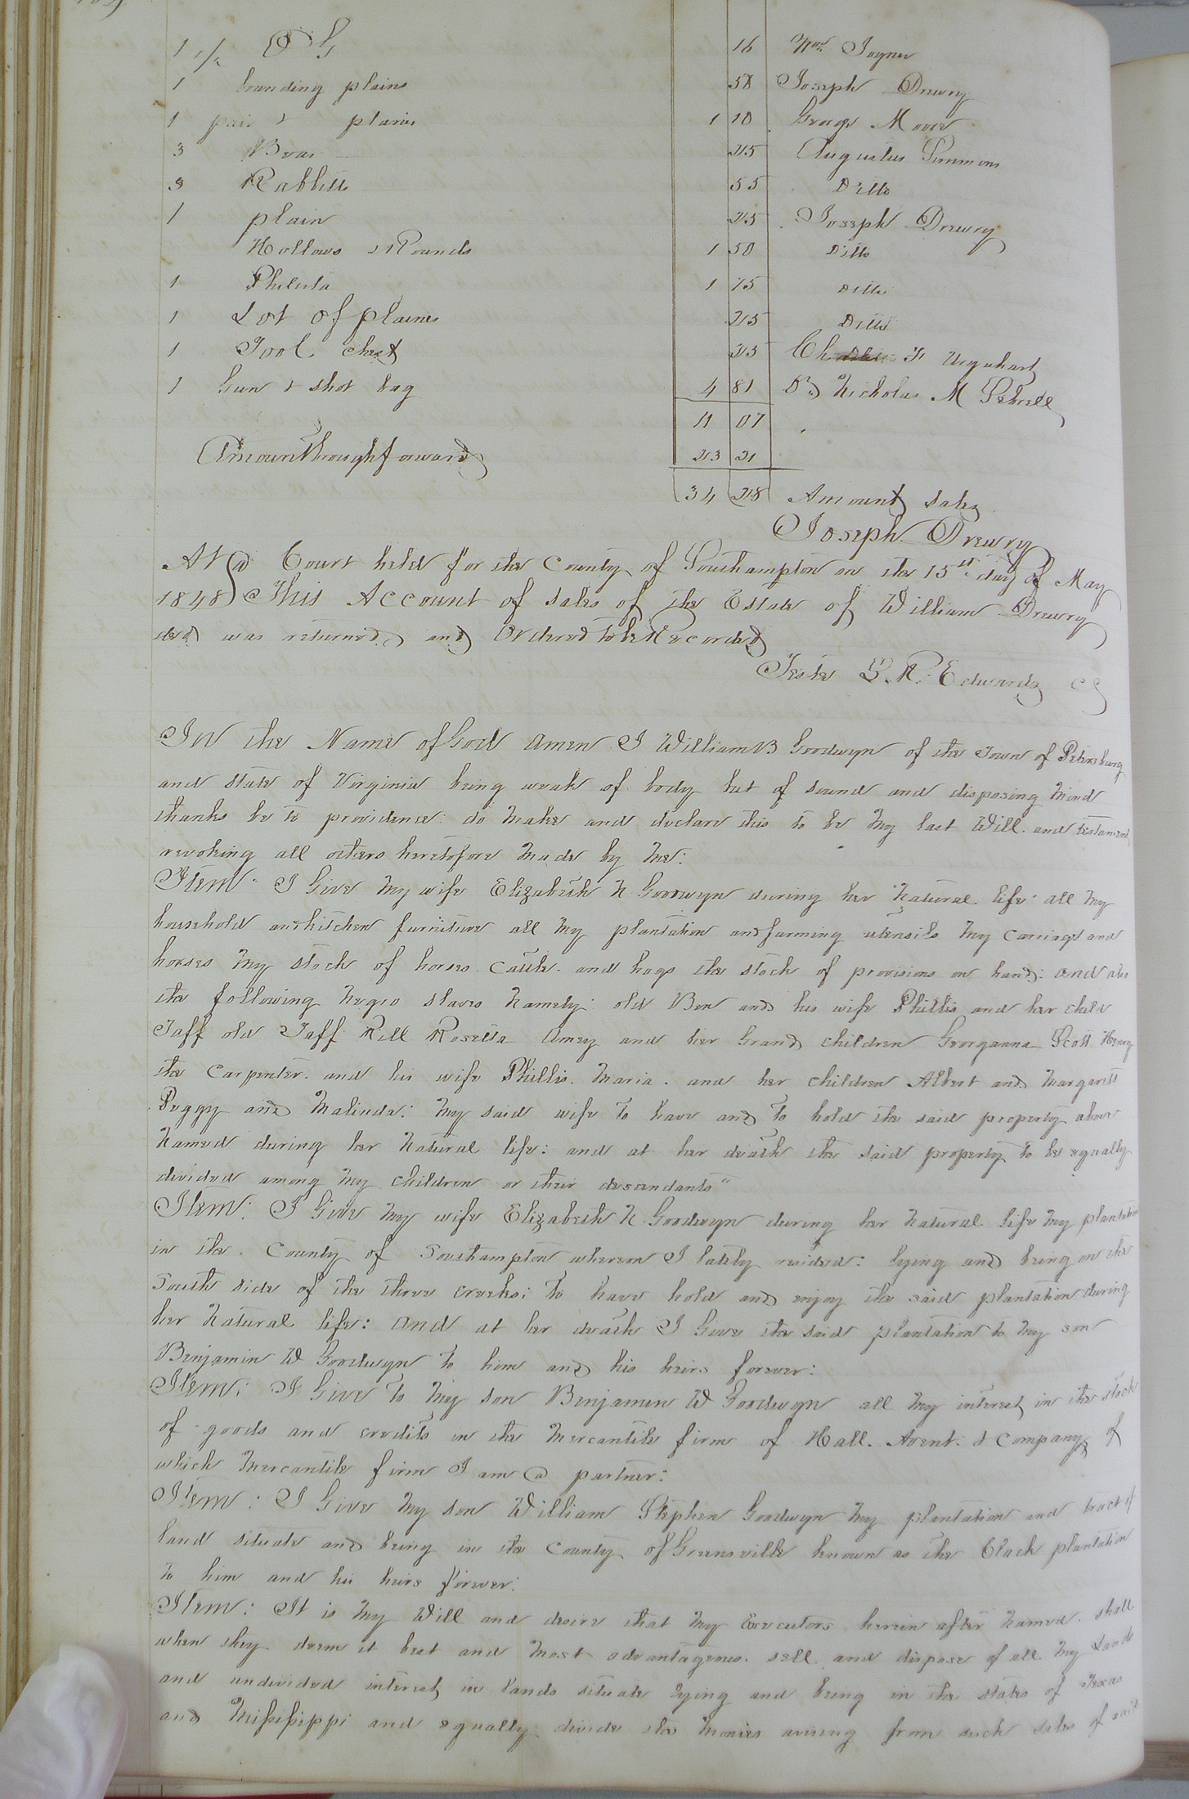 1 1/2 O G 16 Wm Joyner
1 banding plains 58 Joseph Drewry
1 pair plains 1 10 George Moore
3 Beas 25 Augustus Simmons
3 Rabbitts 55 Ditto
1 plain 25 Joseph Drewry
Hollows & Rounds 1 50 Ditto
1 Philista 1 15 Ditto
1 Lot of plains 25 Ditto
1 Tool chest 25 F Urquhart
1 Gun & shot bag 4 81 Dr Nicholas M Sebrell
11 07
Amount brought forward 23 21
34 28 Amount sales
Joseph Drewry
At a Court held for the County of Southampton on the 15th day of May
1848 This Account of sales of the Estate of William Drewry
decd was returned and Ordered to be Recorded
Teste L. R. Edwards CC
In the Name of God amen I William B Goodwyn of the Town of Petersburg
and state of Virginia being weak of body but of sound and disposing mind
thanks be to providence do make and declare this to be my last Will and testament
revoking all others heretofore made by me:
Item I Give my wife Elizabeth N Goodwyn during her Natural life all my
household and kitchen furniture all my plantation and farming utensils my carriage and
horses my stock of horses cattle and hogs the stock of provisions on hand: and also
the following Negro slaves Namely: old Ben and his wife Phillis and her child
Taff old Taff Rill Rosetta Amey and her Grand children Georganna Scott Henry
the Carpenter and his wife Phillis. Maria. and her children Albert and Margarett
Peggy and Malinda: my said wife to have and to hold the said property above
Named during her Natural life: and at her death the said property to be equally
divided among my children or their descendants"
Item: I Give my wife Elizabeth N Goodwyn during her Natural life my plantation
in the County of Southampton whereon I lately resided: lying and being on the
South side of the three creeks: to have hold and enjoy the said plantation during
her Natural life: and at her death I Give the said plantation to my son
Benjamin W Goodwyn to him and his heirs forever:
Item: I Give to my son Benjamin W Goodwyn all my interest in the stock
of goods and credits in the mercantile firm of Hall. Avent. & Company of
which mercantile firm I am a partner:
Item: I Give my son William Stephen Goodwyn my plantation and tract of
land situate and being in the County of Greensville known as the Clack plantation
to him and his heirs forever:
Item: It is my Will and desire that my Executors herein after named shall
when they deem it best and most advantageous. sell and dispose of all my Lands
and undivided interest in lands situate lying and being in the states of Texas
and Mississippi and equally divide the monies arising from such sales of said